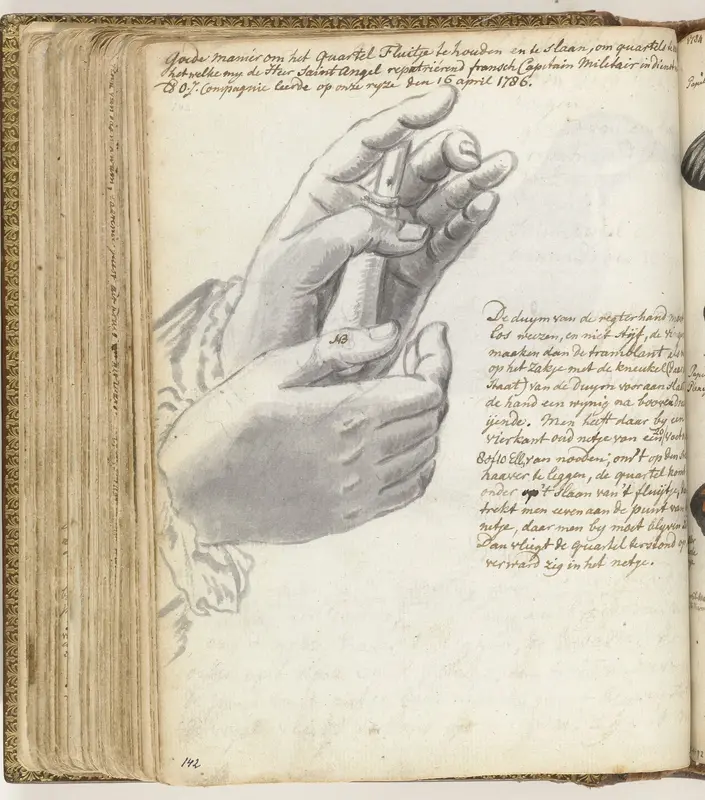 Goede manier om het Quartel Fluitje te houden en te slaan, om quartels te
het welke my de Heer Saint Angel repatriérend fransch Capitain Militair in dienst
d' O.I. Compagnie leerde op onze ryze den 16 april 1786.
NB
De duym van de regterhand moet
los weezen, en niet styf, de vingers
maaken dan de tramblant, als m
op het zakje met de kneukel
staat) van de Duym vooraan slaa
de hand een wynig na boven
ijende. Men heeft daar by een
vierkant oud netje van een voet
8 of 10 Ell, van nooden, om 't op den
haaver te leggen, de quartel komt
onder op 't slaan van 't fluijtje,
trekt men even aan de punt van
netje, daar men by moet blyven
Dan vliegt de quartel terstond op
verward zig in het netje.
142